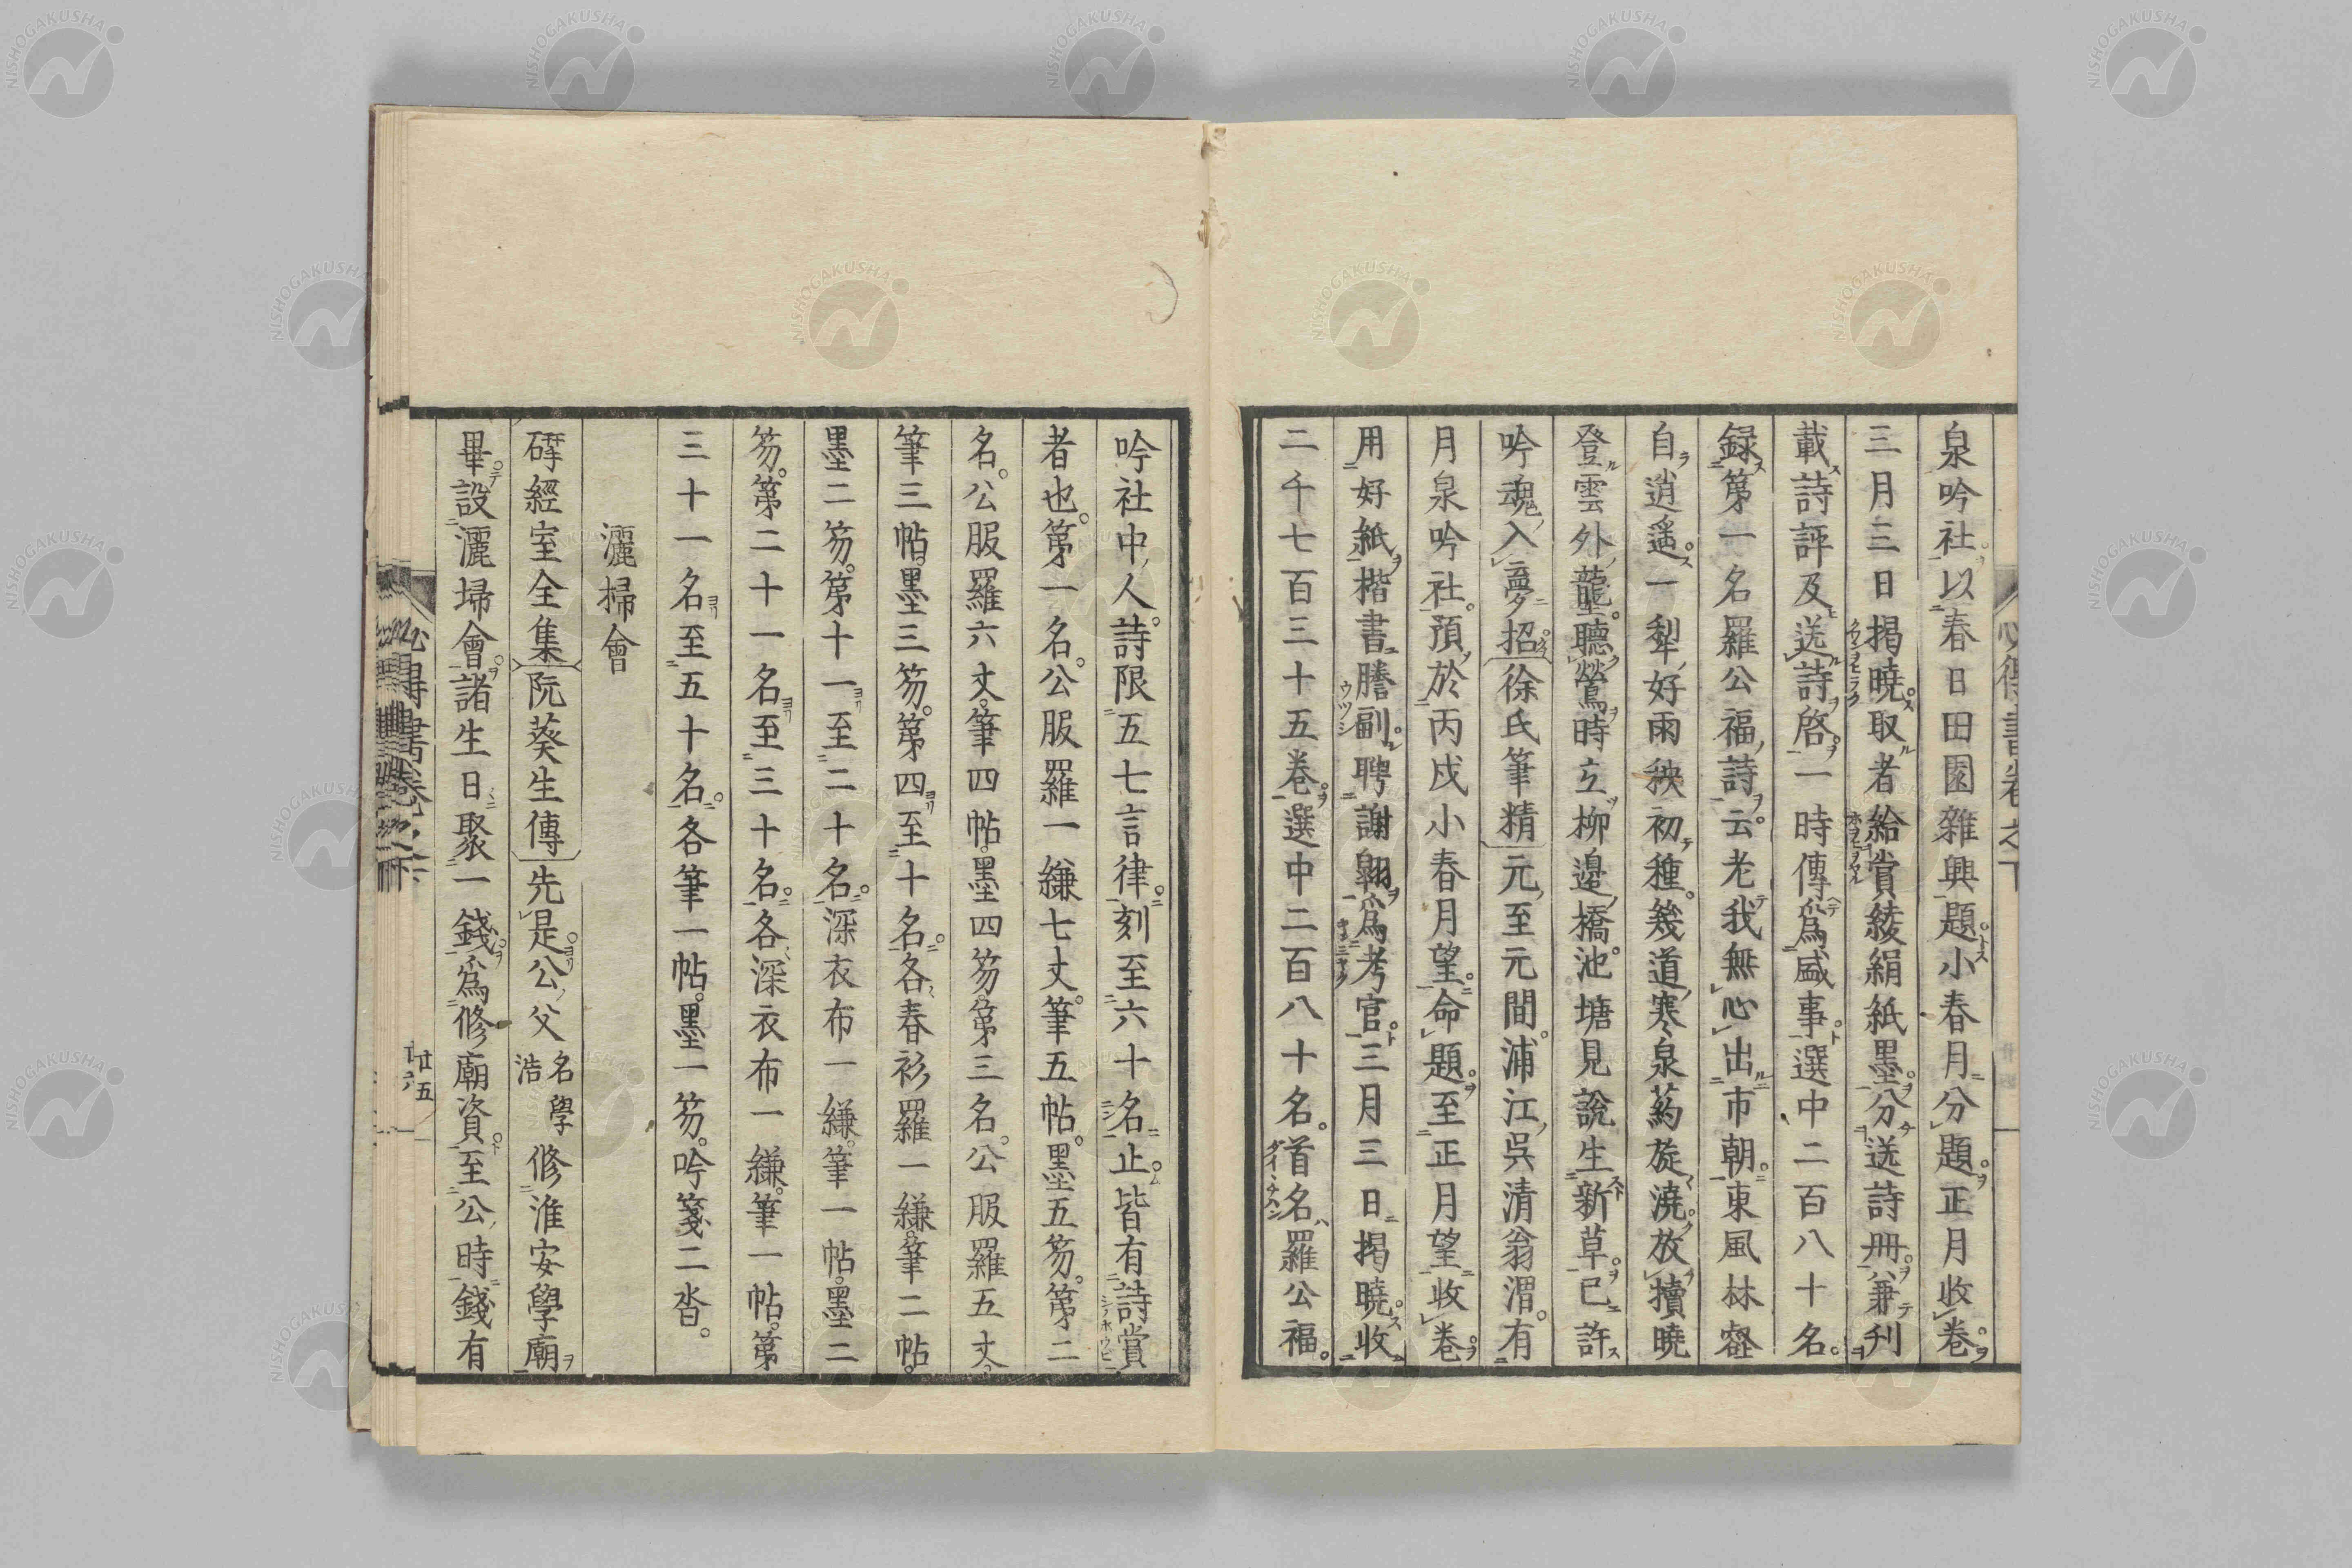 泉吟社以春日田園雜興題小春月分題正月收卷
三月三日揭曉取者給賞綾絹紙墨分送詩冊兼刊
載詩評及送詩啓一時傳爲盛事選中二百八十名
録第一名羅公福詩云老我無心出市朝東風林壑
自逍遥一犁好雨秧初種幾道寒泉藥旋澆放犢曉
登雲外壟聽鶯時立柳邉橋池塘見說生新草已許
吟魂入夢招徐氏筆精元至元間浦江吳清翁渭有
月泉吟社預於丙戌小春月望命題至正月望收卷
用好紙楷書謄副聘謝翱爲考官三月三日揭曉收
二千七百三十五卷選中二百八十名首名羅公福
吟社中人詩限五七言律刻至六十名止皆有詩賞
者也第一名公服羅一縑七丈筆五帖墨五笏第二
名公服羅六丈筆四帖墨四笏第三名公服羅五丈
筆三帖墨三笏第四至十名各春衫羅一縑筆二帖
墨二笏第十一至二十名深衣布一縑筆一帖墨二
笏第二十一名至三十名各深衣布一縑筆一帖第
三十一名至五十名各筆一帖墨一笏吟箋二沓
灑掃會
硏經室全集阮葵生傳先是公父名學浩修淮安學廟
畢設灑掃會諸生日聚一錢爲修廟資至公時錢有
廿五
NISHOGAKUSHA